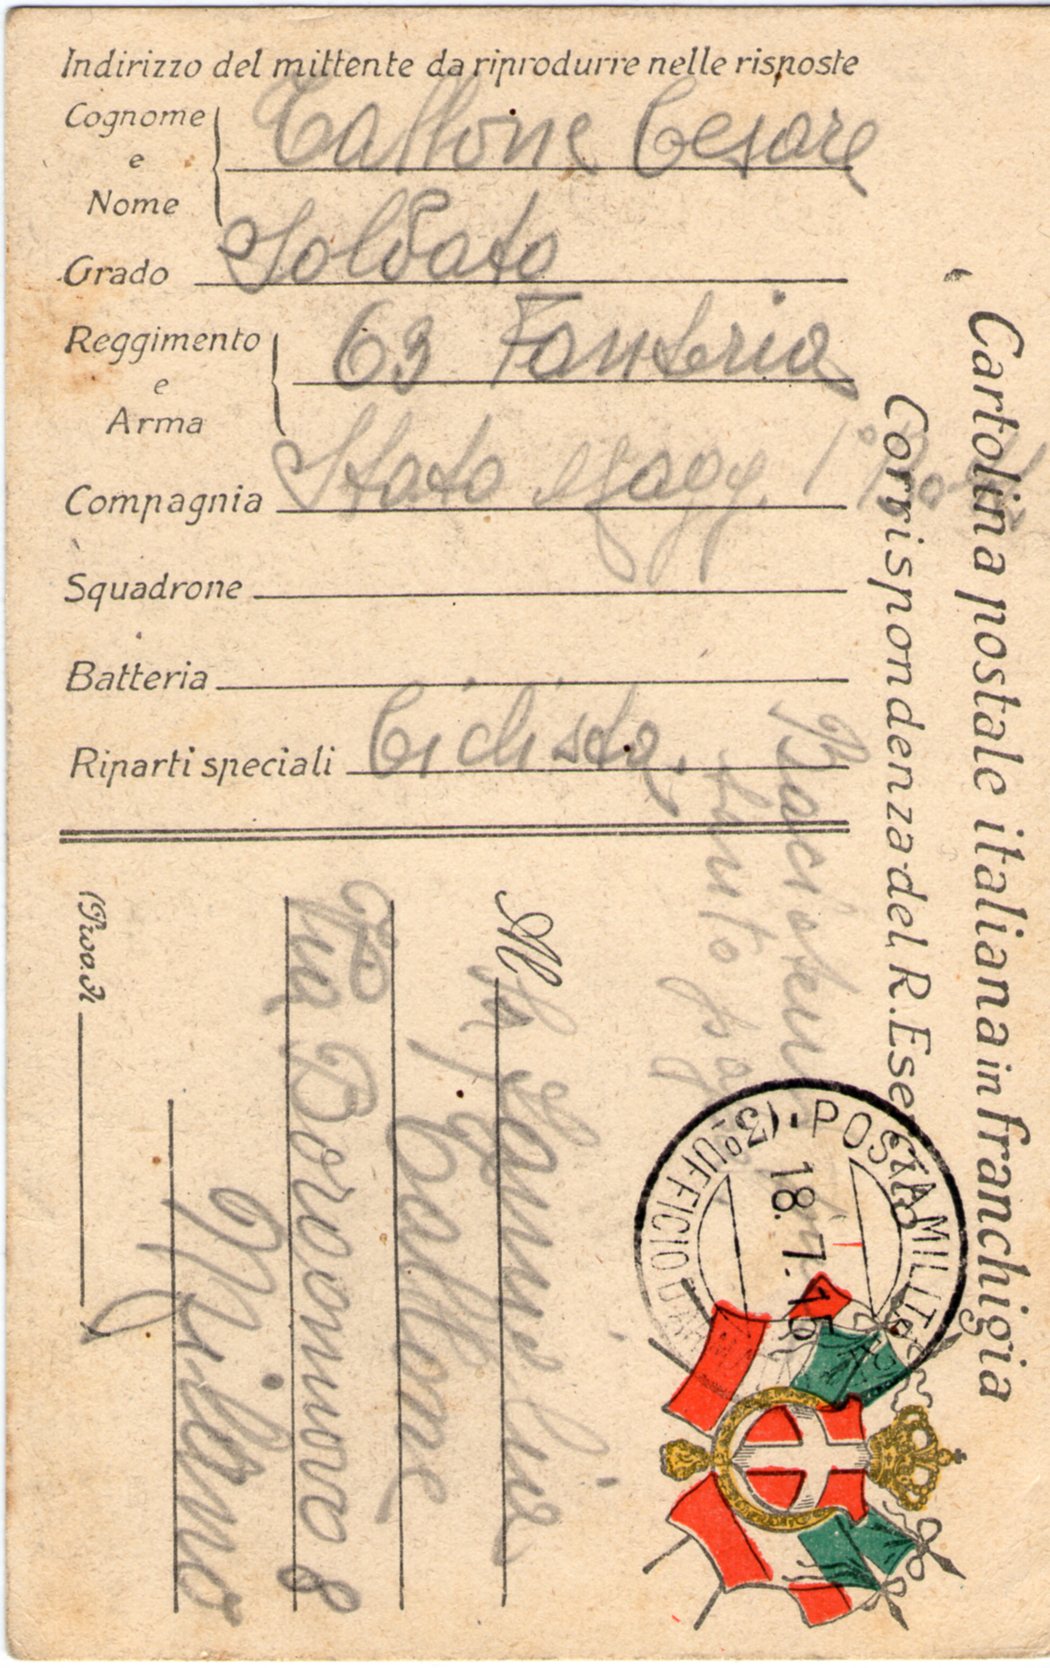 Indirizzo del mittente da riprodurre nelle risposte
Cognome e Nome Tallone Cesare
Grado Soldato
Reggimento e Arma 63 Fanteria
Compagnia Stato Magg. 1°
Squadrone
Batteria
Riparti speciali Ciclista.
Cartolina postale italiana in franchigia
Corrispondenza del R. Eser
POSTA MILITARE
18.7.16
(3°) UFFICIO D'AR
Al
Tallone
Via Borgonuovo 8
Milano
(Prov. di )